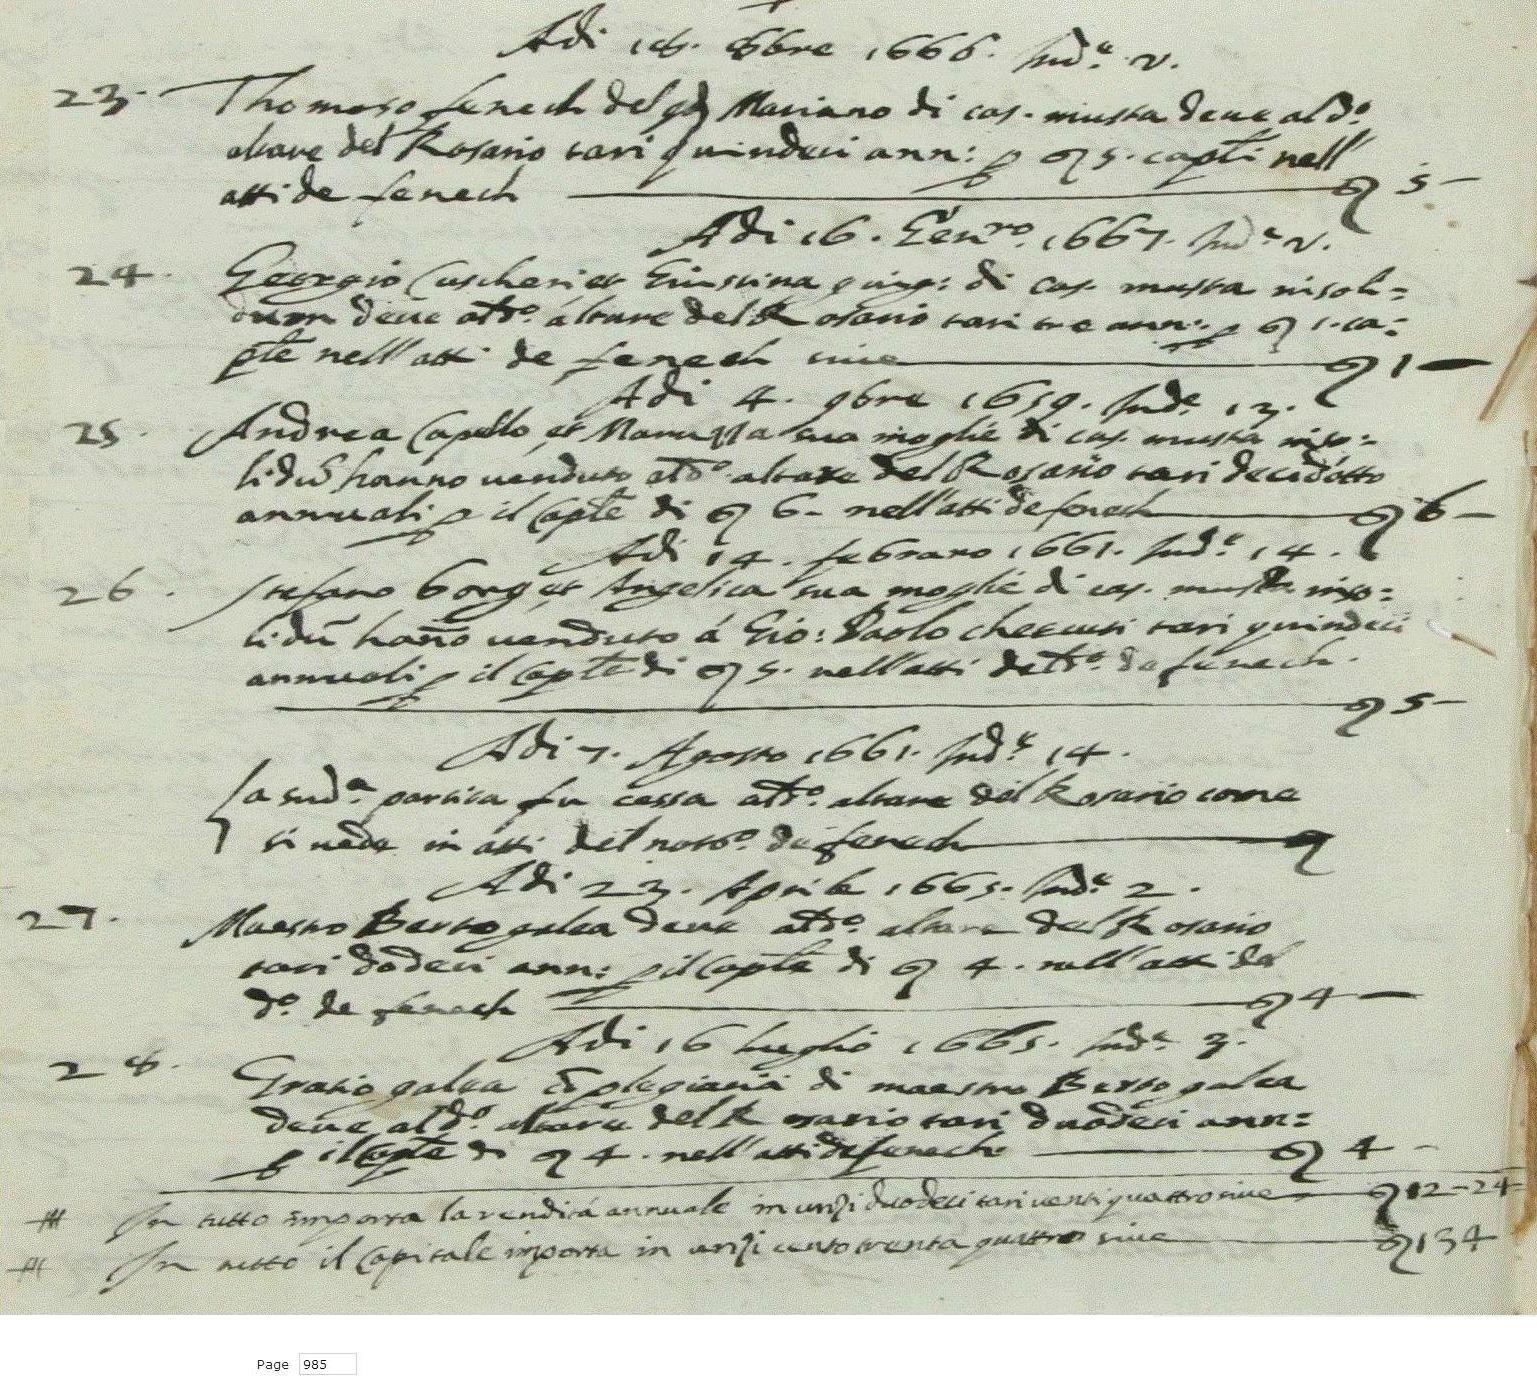 Adi 18. 8bre 1666. Ind.e v.
23. Thomaso fenech del qd Mariano di cas. musta deve al d.o
altare del Rosario tari quindeci ann: p 5. capti nell'
atti de fenech 5 -
Adi 16. Gen.ro 1667. Ind.e v.
24. Georgio Cuscheri et Giustina giug: di Cas. musta insoli=
dum deve al d.o altare del Rosario tari tre ann: p 1. ca=
pte nell'atti de fenech sive 1 -
Adi 4. 9bre 1659. Ind.e 13.
25. Andrea Capello et Maruzza sua moglie di cas. musta inso=
lidũ hanno venduto al d.o altare del Rosario tari decidotto
annuali p il Capte di 6 - nell'atti de fenech 6 -
Adi 14. febraro 1661. Ind.e 14.
26. Stefano borg et Angelica sua moglie di cas. musta inso=
lidũ hano venduto á Gio: Paolo checcuti tari quindeci
annuali p il Capte di 5. nell'atti de d.o de fenech.
5 -
Adi 7. Agosto 1661. Ind.e 14.
La sud.a partita fu cessa al d.o altare del Rosario come
si vede in atti del not.o de fenech
Adi 23. Aprile 1665. Ind.e 2.
27. Maestro Berto galea deve al d.o altare del Rosario
tari dodeci ann: p il Capte di 4. nell'atti del
d.o de fenech 4 -
Adi 16 luglio 1665. Ind.e 3.
28. Gratio galea plegiaria di maestro Berto galea
deve al d.o altare del Rosario tari duodeci ann=
p il Capte di 4. nell'atti de fenech 4 -
In tutto importa la rendita annuale in unzi duodeci tari venti quattro sive 12-24
In tutto il Capitale importa in unzi cento trenta quattro sive 134
Page 985